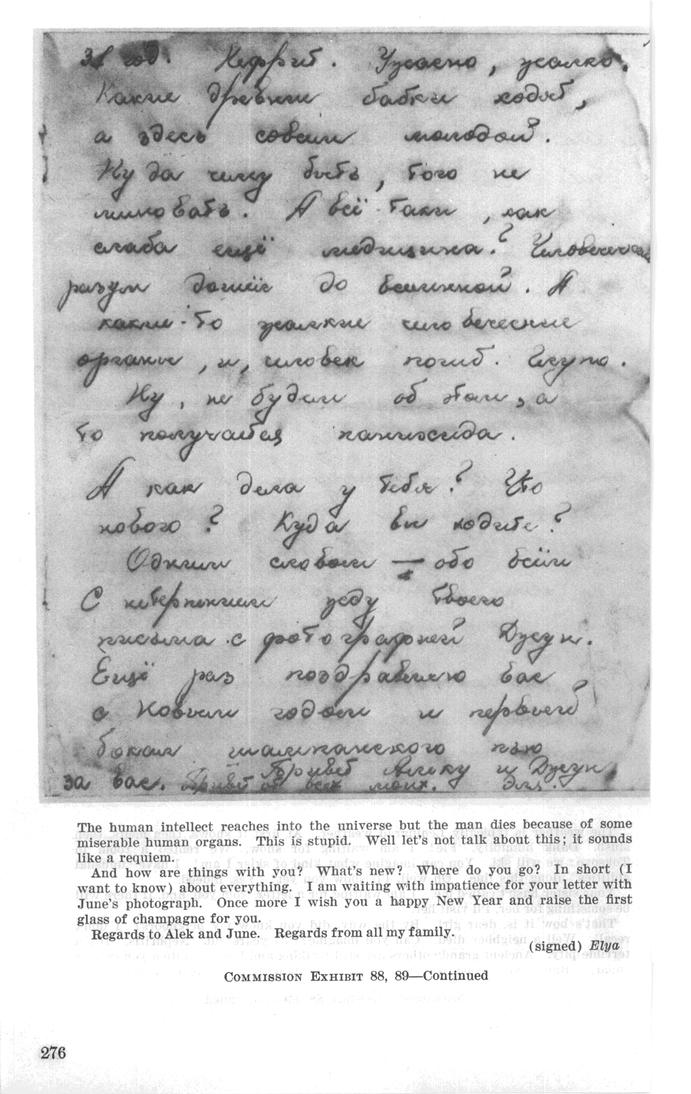 31 год. Нефрит. Ужасно, жалко.
Какие древние бабки ходят,
а здесь совсем молодой.
Ну да чему быть, того не
миновать. А всё таки, как
слаба ещё медицина? Человеческий
разум дошёл до вселенной. А
какие-то жалкие человеческие
органы, и, человек погиб. Глупо.
Ну, не будем об этом, а
то получается панихида.
А как дела у тебя? Что
нового? Куда вы ходите?
Одним словом — обо всём
С нетерпением жду твоего
письма с фотографией Джун.
Ещё раз поздравляю вас
с Новым годом и первый
бокал шампанского пью
за вас. Привет Алику и Джун,
Привет от всех моих. Эля.
The human intellect reaches into the universe but the man dies because of some
miserable human organs. This is stupid. Well let's not talk about this; it sounds
like a requiem.
And how are things with you? What's new? Where do you go? In short (I
want to know) about everything. I am waiting with impatience for your letter with
June's photograph. Once more I wish you a happy New Year and raise the first
glass of champagne for you.
Regards to Alek and June. Regards from all my family.
(signed) Elya
COMMISSION EXHIBIT 88, 89—Continued
276